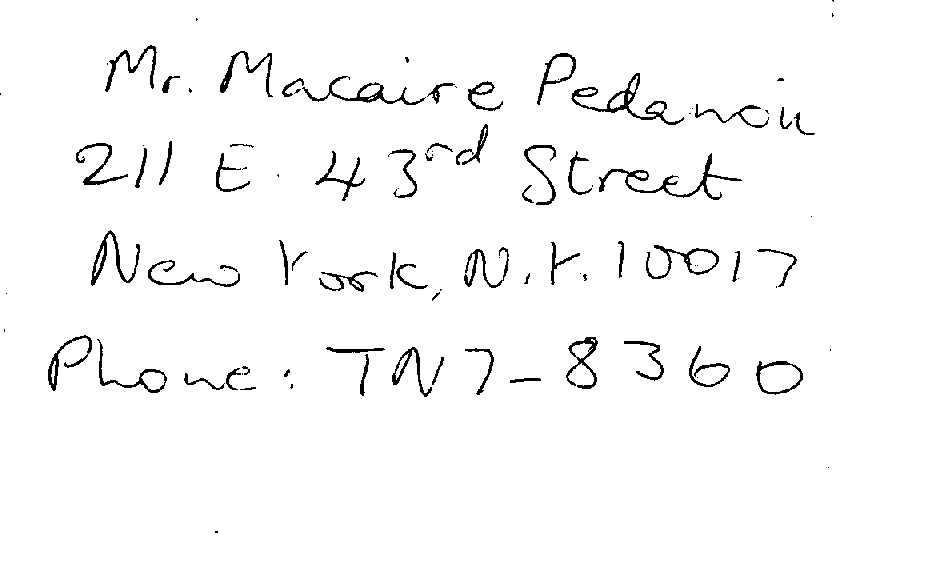 Mr. Macaire Pedanou
211 E. 43rd Street
New York, N.Y. 10017
Phone: TN7-8360